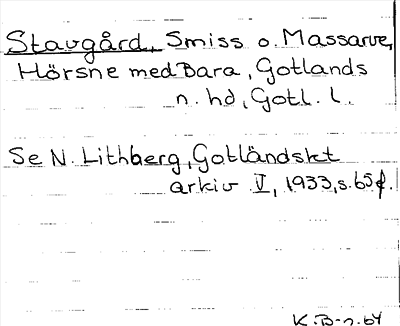 Stavgård, Smiss o. Massarve,
Hörsne med Bara, Gotlands
n. hd, Gotl. l.
Se N. Lithberg, Gotländskt
arkiv V, 1933, s. 65 f.
K.B-n. 64